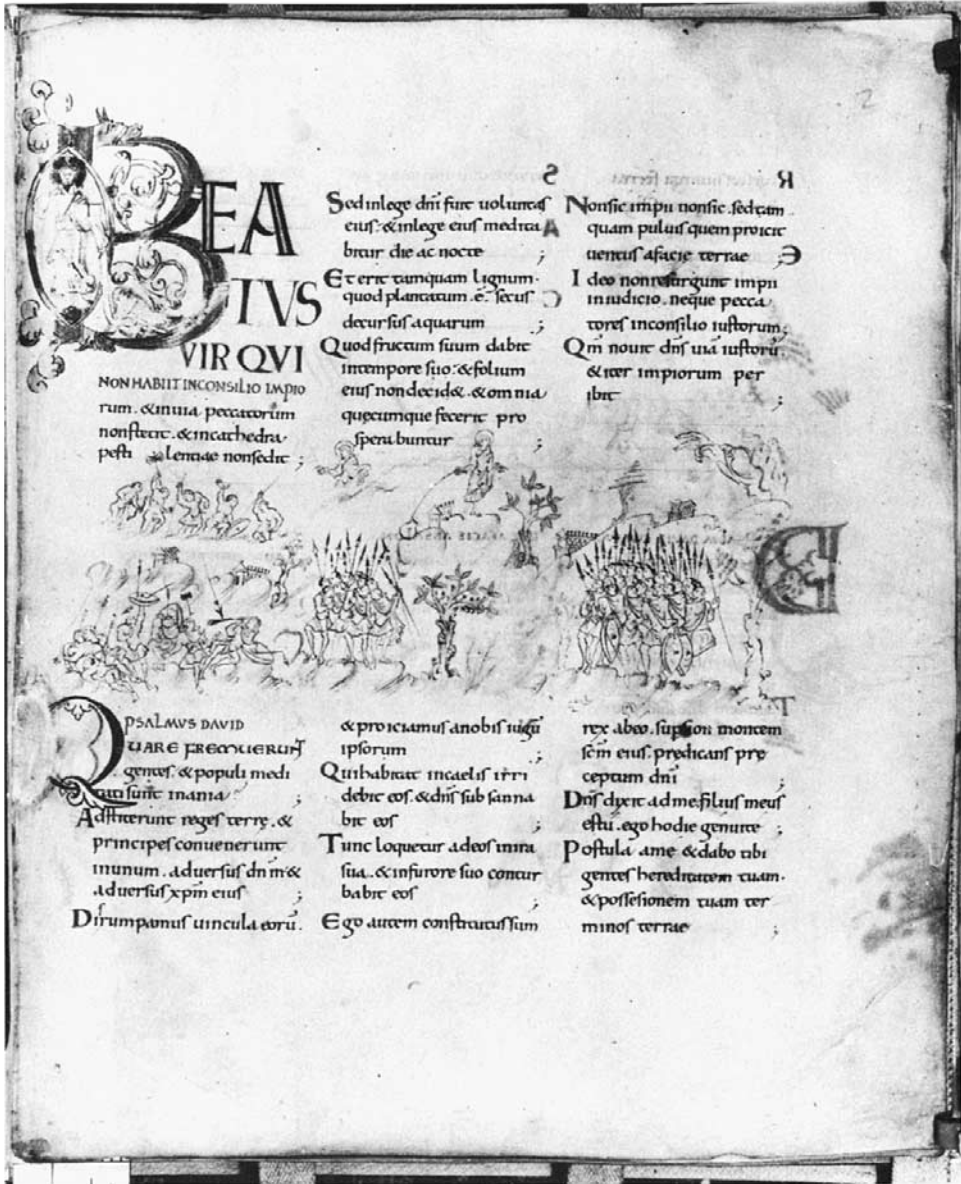 2
BEA
TVS
VIR QVI
NON HABIIT INCONSILIO IMPIO
rum. & inuia peccatorum
non stetit. & incathedra
pesti lentiae non sedit ;
Sed inlege dñi fuit uoluntas
eius: & inlege eius medita
bitur die ac nocte ;
Et erit tamquam lignum.
quod plantatum. ē. secus
decursus aquarum ;
Quod fructum suum dabit
intempore suo: & folium
eius non decid&. & omnia
quecumque fecerit pro
spera buntur ;
Non sic impii non sic. sed tam
quam puluis quem proicit
uentus afacie terrae ;
Ideo non resurgunt impii
iniudicio. neque pecca
tores inconsilio iustorum ;
Qm̄ nouit dn̄s uiā iustorū.
& iter impiorum per
ibit ;
PSALMVS DAVID
QUARE FREMUERUNT
gentes. & populi medi
tati sunt inania ;
Adstiterunt reges terrę. &
principes convenerunt
inunum. adversus dnm̄ &
adversus xp̄m eius ;
Dirumpamus uincula eorū.
& proiciamus anobis iugū
ipsorum
Qui habitat incaelis irri
debit eos. & dn̄s sub sanna
bit eos ;
Tunc loquetur ad eos inira
sua. & infurore suo contur
babit eos ;
Ego autem constitutus sum
rex ab eo. sup sion montem
sc̄m eius. predicans pre
ceptum dn̄i ;
Dn̄s dixit ad me: filius meus
es tu. ego hodie genui te ;
Postula ame & dabo tibi
gentes hereditatem tuam.
& possesionem tuam ter
minos terrae ;